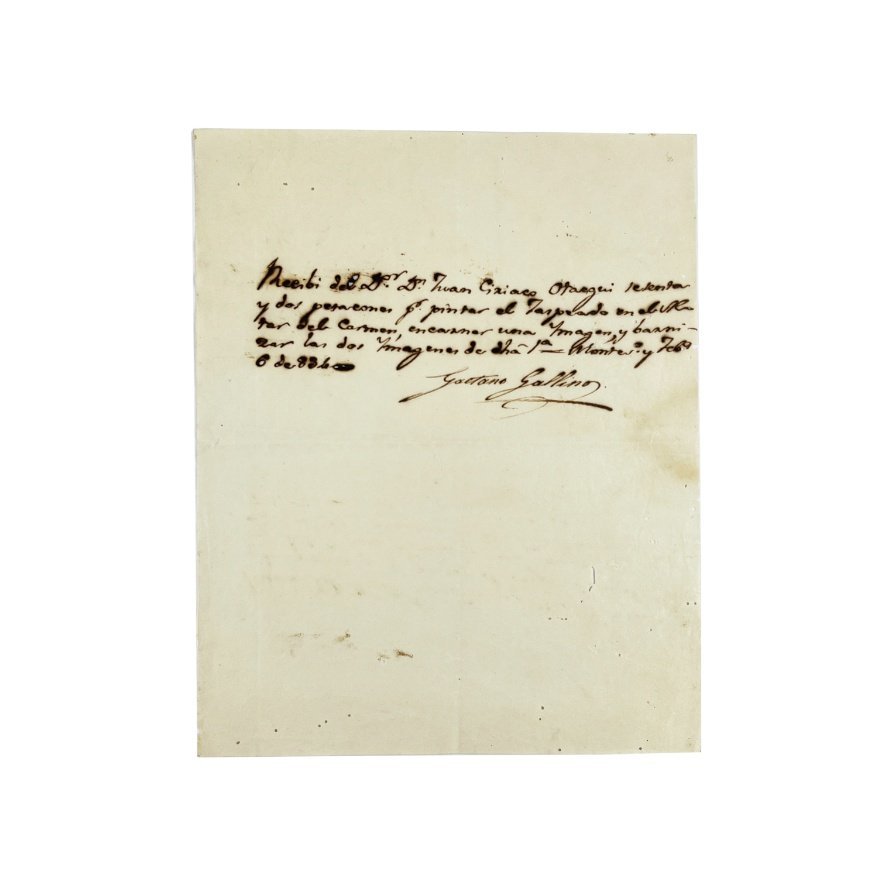 Recibi del Sr. Dn. Juan Ciriaco Otaegui setenta
y dos patacones pr. pintar el Jaspeado en el Al-
tar del Carmen, encarnar una Imagen, y barni-
zar las dos Imagenes de dha Ia — Montevo. y Febo.
6 de 834
Gaetano Gallino